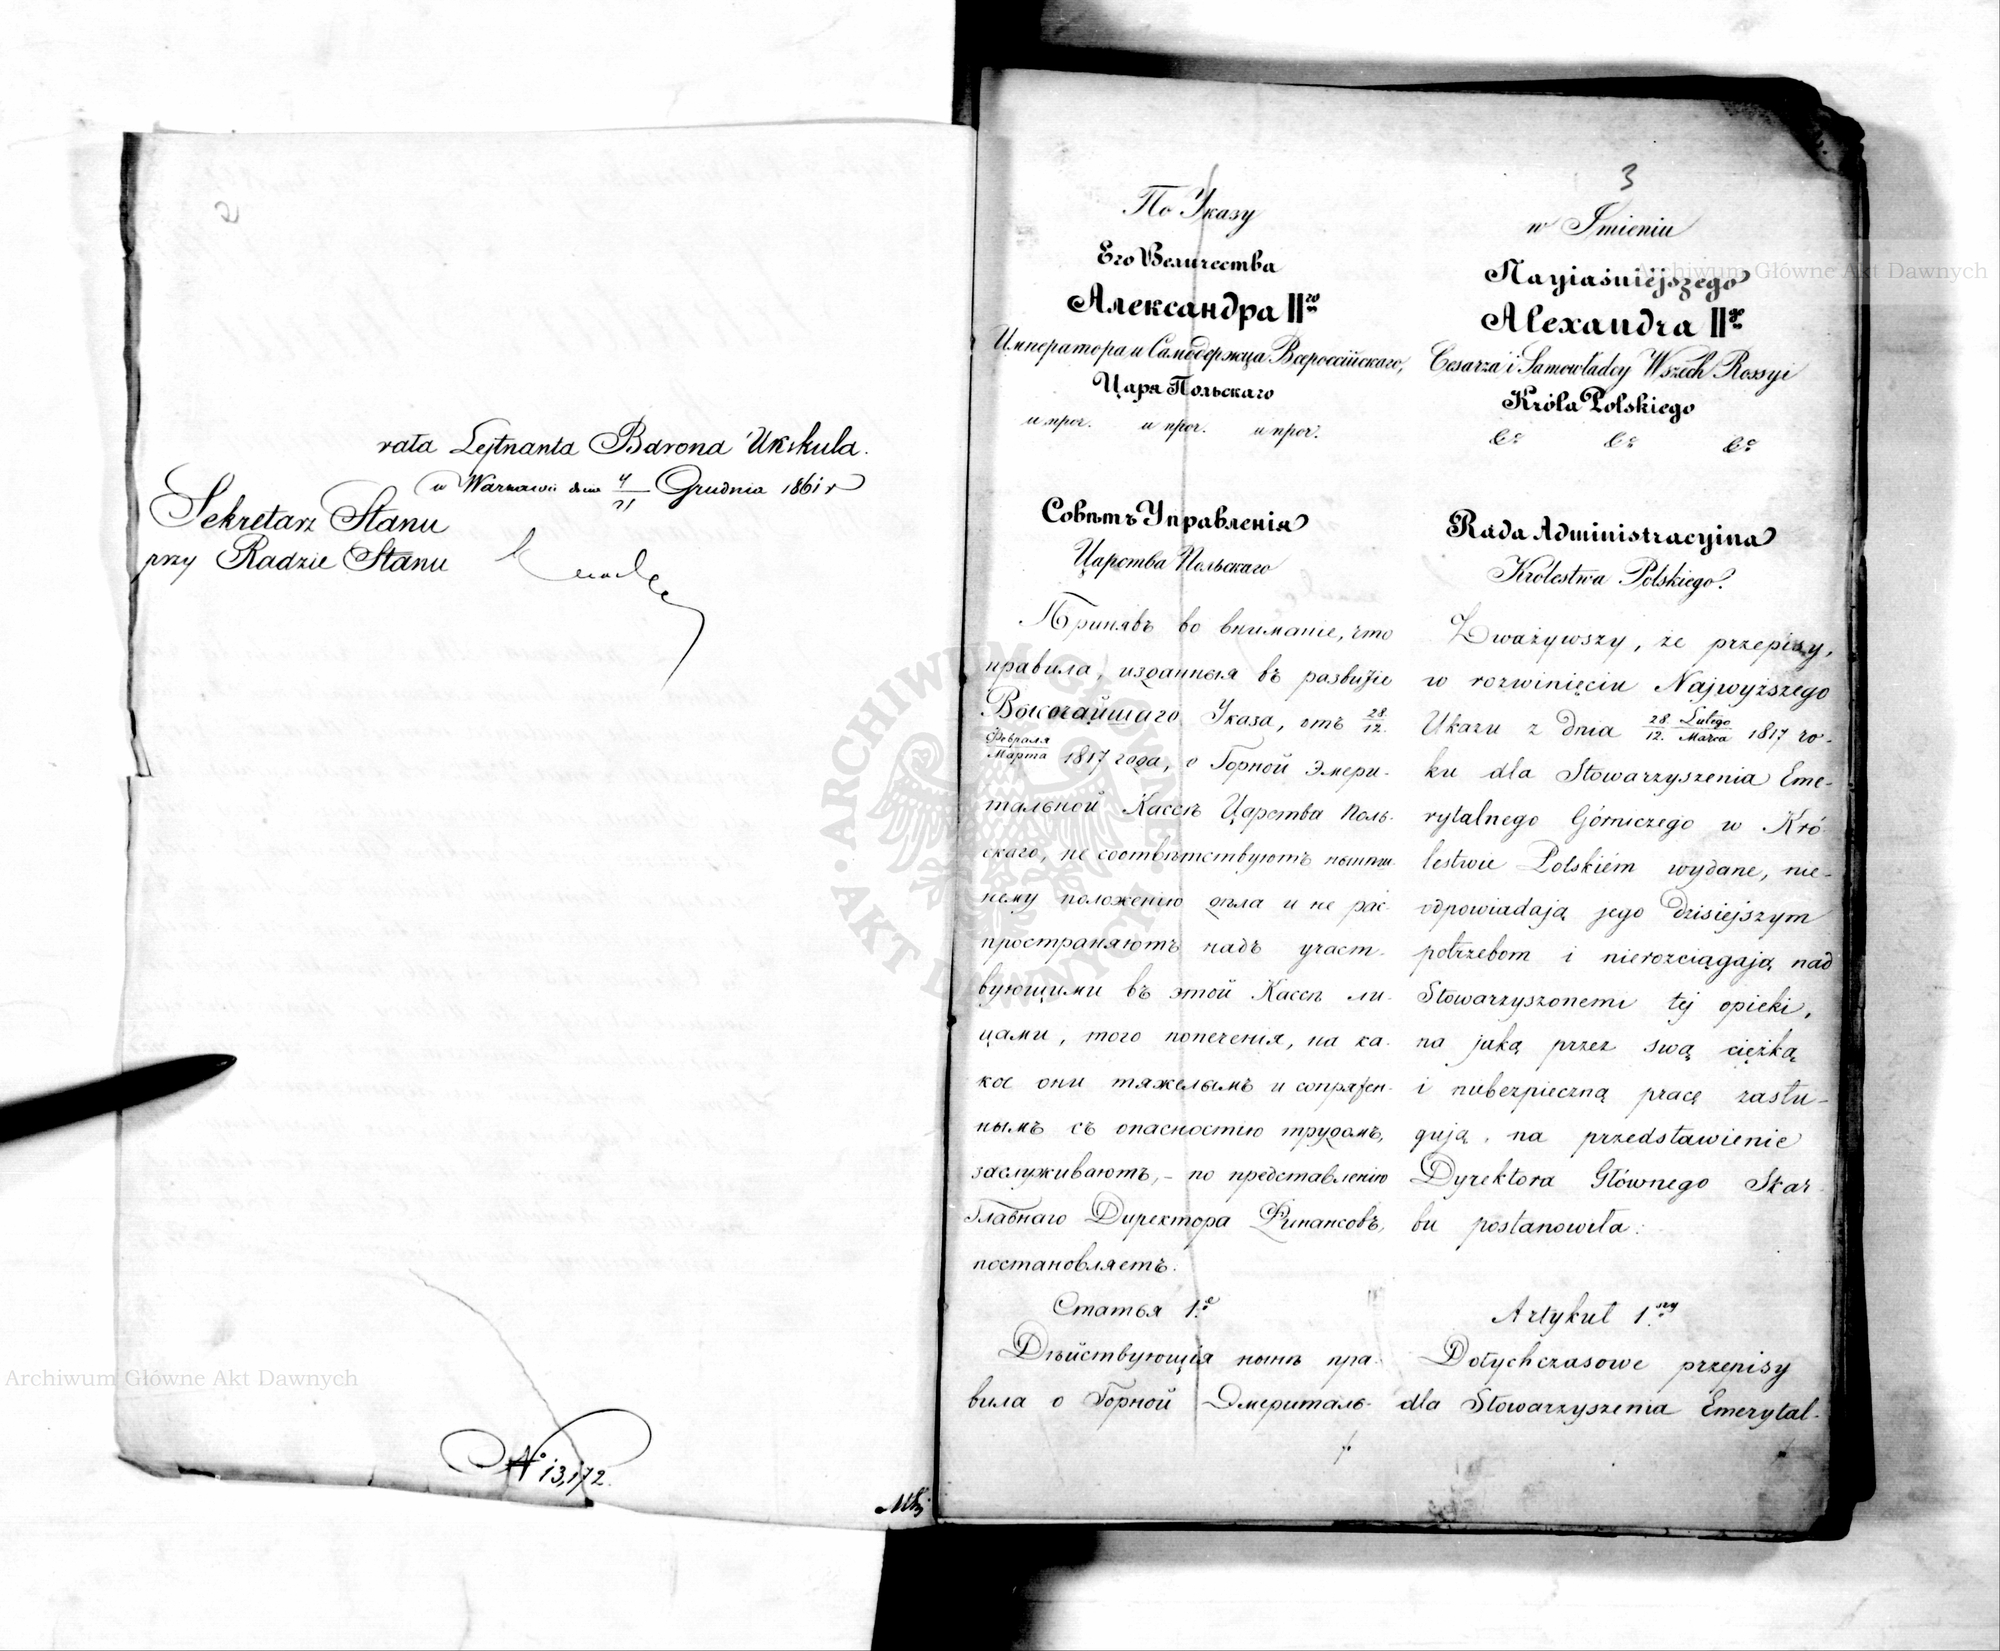 2
rała Lejtnanta Barona Ukskula.
w Warszawie dnia 9/21 Grudnia 1861 r
Sekretarz Stanu
przy Radzie Stanu
№ 13,172.
3
По Указу
Его Величества
Александра II го
Императора и Самодержца Всероссiйскаго,
Царя Польскаго
и проч. и проч. и проч.
Совѣтъ Управленiя
Царства Польскаго
Принявъ во вниманiе, что
правила, изданныя въ развитiе
Высочайшаго Указа, отъ 28/12.
Февраля/Марта 1817 года, о Горной Эмери-
тальной Кассѣ Царства Поль-
скаго, не соотвѣтствуютъ нынѣш-
нему положенiю дѣла и не рас-
пространяютъ надъ участ-
вующими въ этой Кассѣ ли-
цами, того попеченiя, на ка-
кое они тяжелымъ и сопряжен-
нымъ съ опасностiю трудомъ,
заслуживаютъ, - по представленiю
Главнаго Директора Финансовъ,
постановляетъ:
Статья 1.е
Дѣйствующiя нынѣ пра-
вила о Горной Эмериталь-
w Imieniu
Nayiaśniejszego
Alexandra II go
Cesarza i Samowładcy Wszech Rossyi
Króla Polskiego
&c &c &c
Rada Administracyina
Królestwa Polskiego.
Zważywszy, że przepisy,
w rozwinięciu Najwyższego
Ukazu z dnia 28/12. Lutego/Marca 1817 ro-
ku dla Stowarzyszenia Eme-
rytalnego Górniczego w Kró-
lestwie Polskiém wydane, nie-
odpowiadają jego dzisiejszym
potrzebom i nierozciągają nad
Stowarzyszonemi tej opieki,
na jaką przez swą ciężką
i niebezpieczną pracę zasłu-
gują, na przedstawienie
Dyrektora Głównego Skar-
bu postanowiła:
Artykuł 1.szy
Dotychczasowe przepisy
dla Stowarzyszenia Emerytal-
Archiwum Główne Akt Dawnych
Archiwum Główne Akt Dawnych
ARCHIWUM GŁÓWNE AKT DAWNYCH